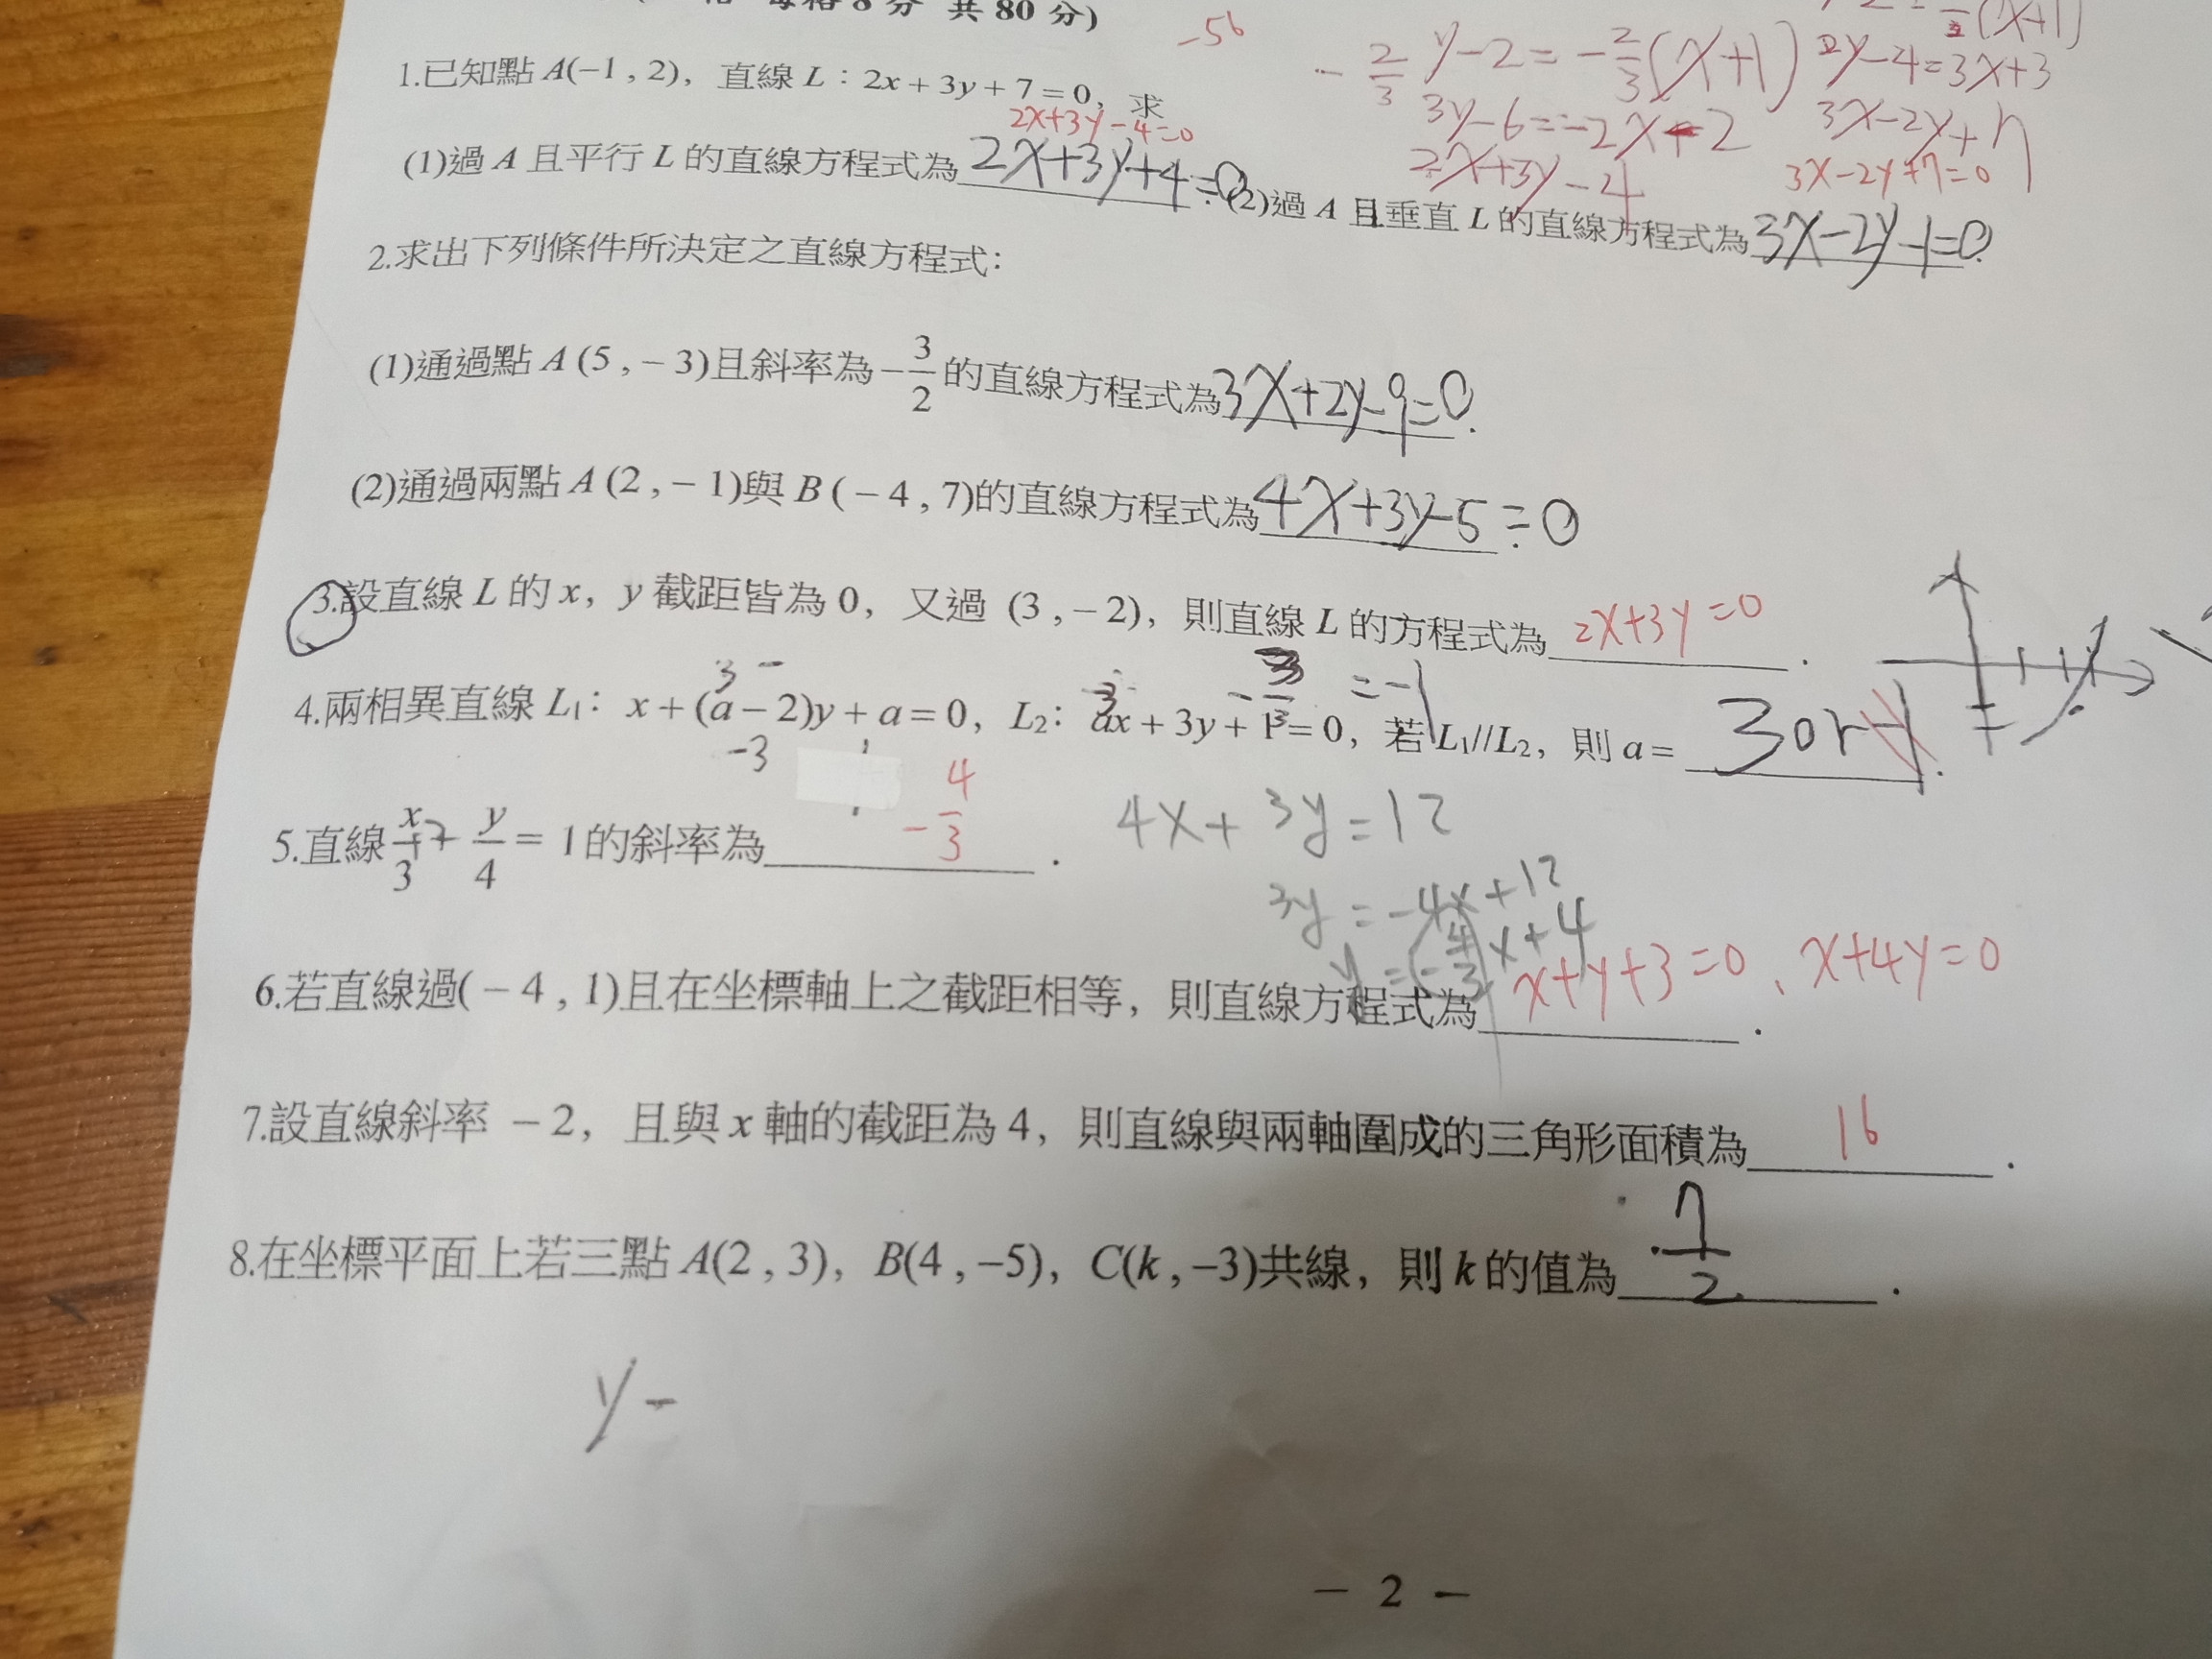 每格8分 共80分)
-56
1.已知點A(−1 , 2)，直線L：2x + 3y + 7 = 0，求
2x+3y-4=0
(1)過A且平行L的直線方程式為2x+3y+4=0. (2)過A且垂直L的直線方程式為3x-2y-1=0.
-2/3 y-2=-2/3(x+1)
3y-6=-2x-2
2x+3y-4
(x+1)
2y-4=3x+3
3x-2y+7
3x-2y+7=0
2.求出下列條件所決定之直線方程式：
(1)通過點A (5 , − 3)且斜率為−3/2的直線方程式為3x+2y-9=0.
(2)通過兩點A (2 , − 1)與B ( − 4 , 7)的直線方程式為4x+3y-5=0.
3.設直線L的x，y截距皆為0，又過 (3 , − 2)，則直線L的方程式為2x+3y=0.
3 -
-3
3
=-1
4.兩相異直線L₁：x + (a − 2)y + a = 0，L₂：ax + 3y + 1 = 0，若L₁//L₂，則a= 3 or -1.
-3
5.直線x/3 + y/4 = 1的斜率為-4/3.
4x+3y=12
3y=-4x+12
y=(-4/3)x+4
6.若直線過( − 4 , 1)且在坐標軸上之截距相等，則直線方程式為x+y+3=0、x+4y=0.
7.設直線斜率 − 2，且與x軸的截距為4，則直線與兩軸圍成的三角形面積為16.
8.在坐標平面上若三點A(2 , 3)，B(4 , −5)，C(k , −3)共線，則k的值為7/2.
y-
− 2 −